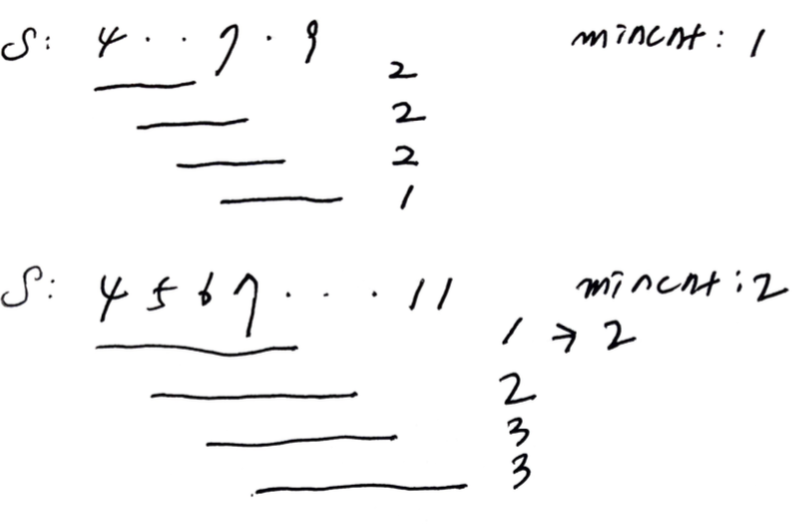 S: 4 · · 7 · 9 mincnt: 1
2
2
2
1
S: 4 5 6 7 · · · 11 mincnt: 2
1 → 2
2
3
3